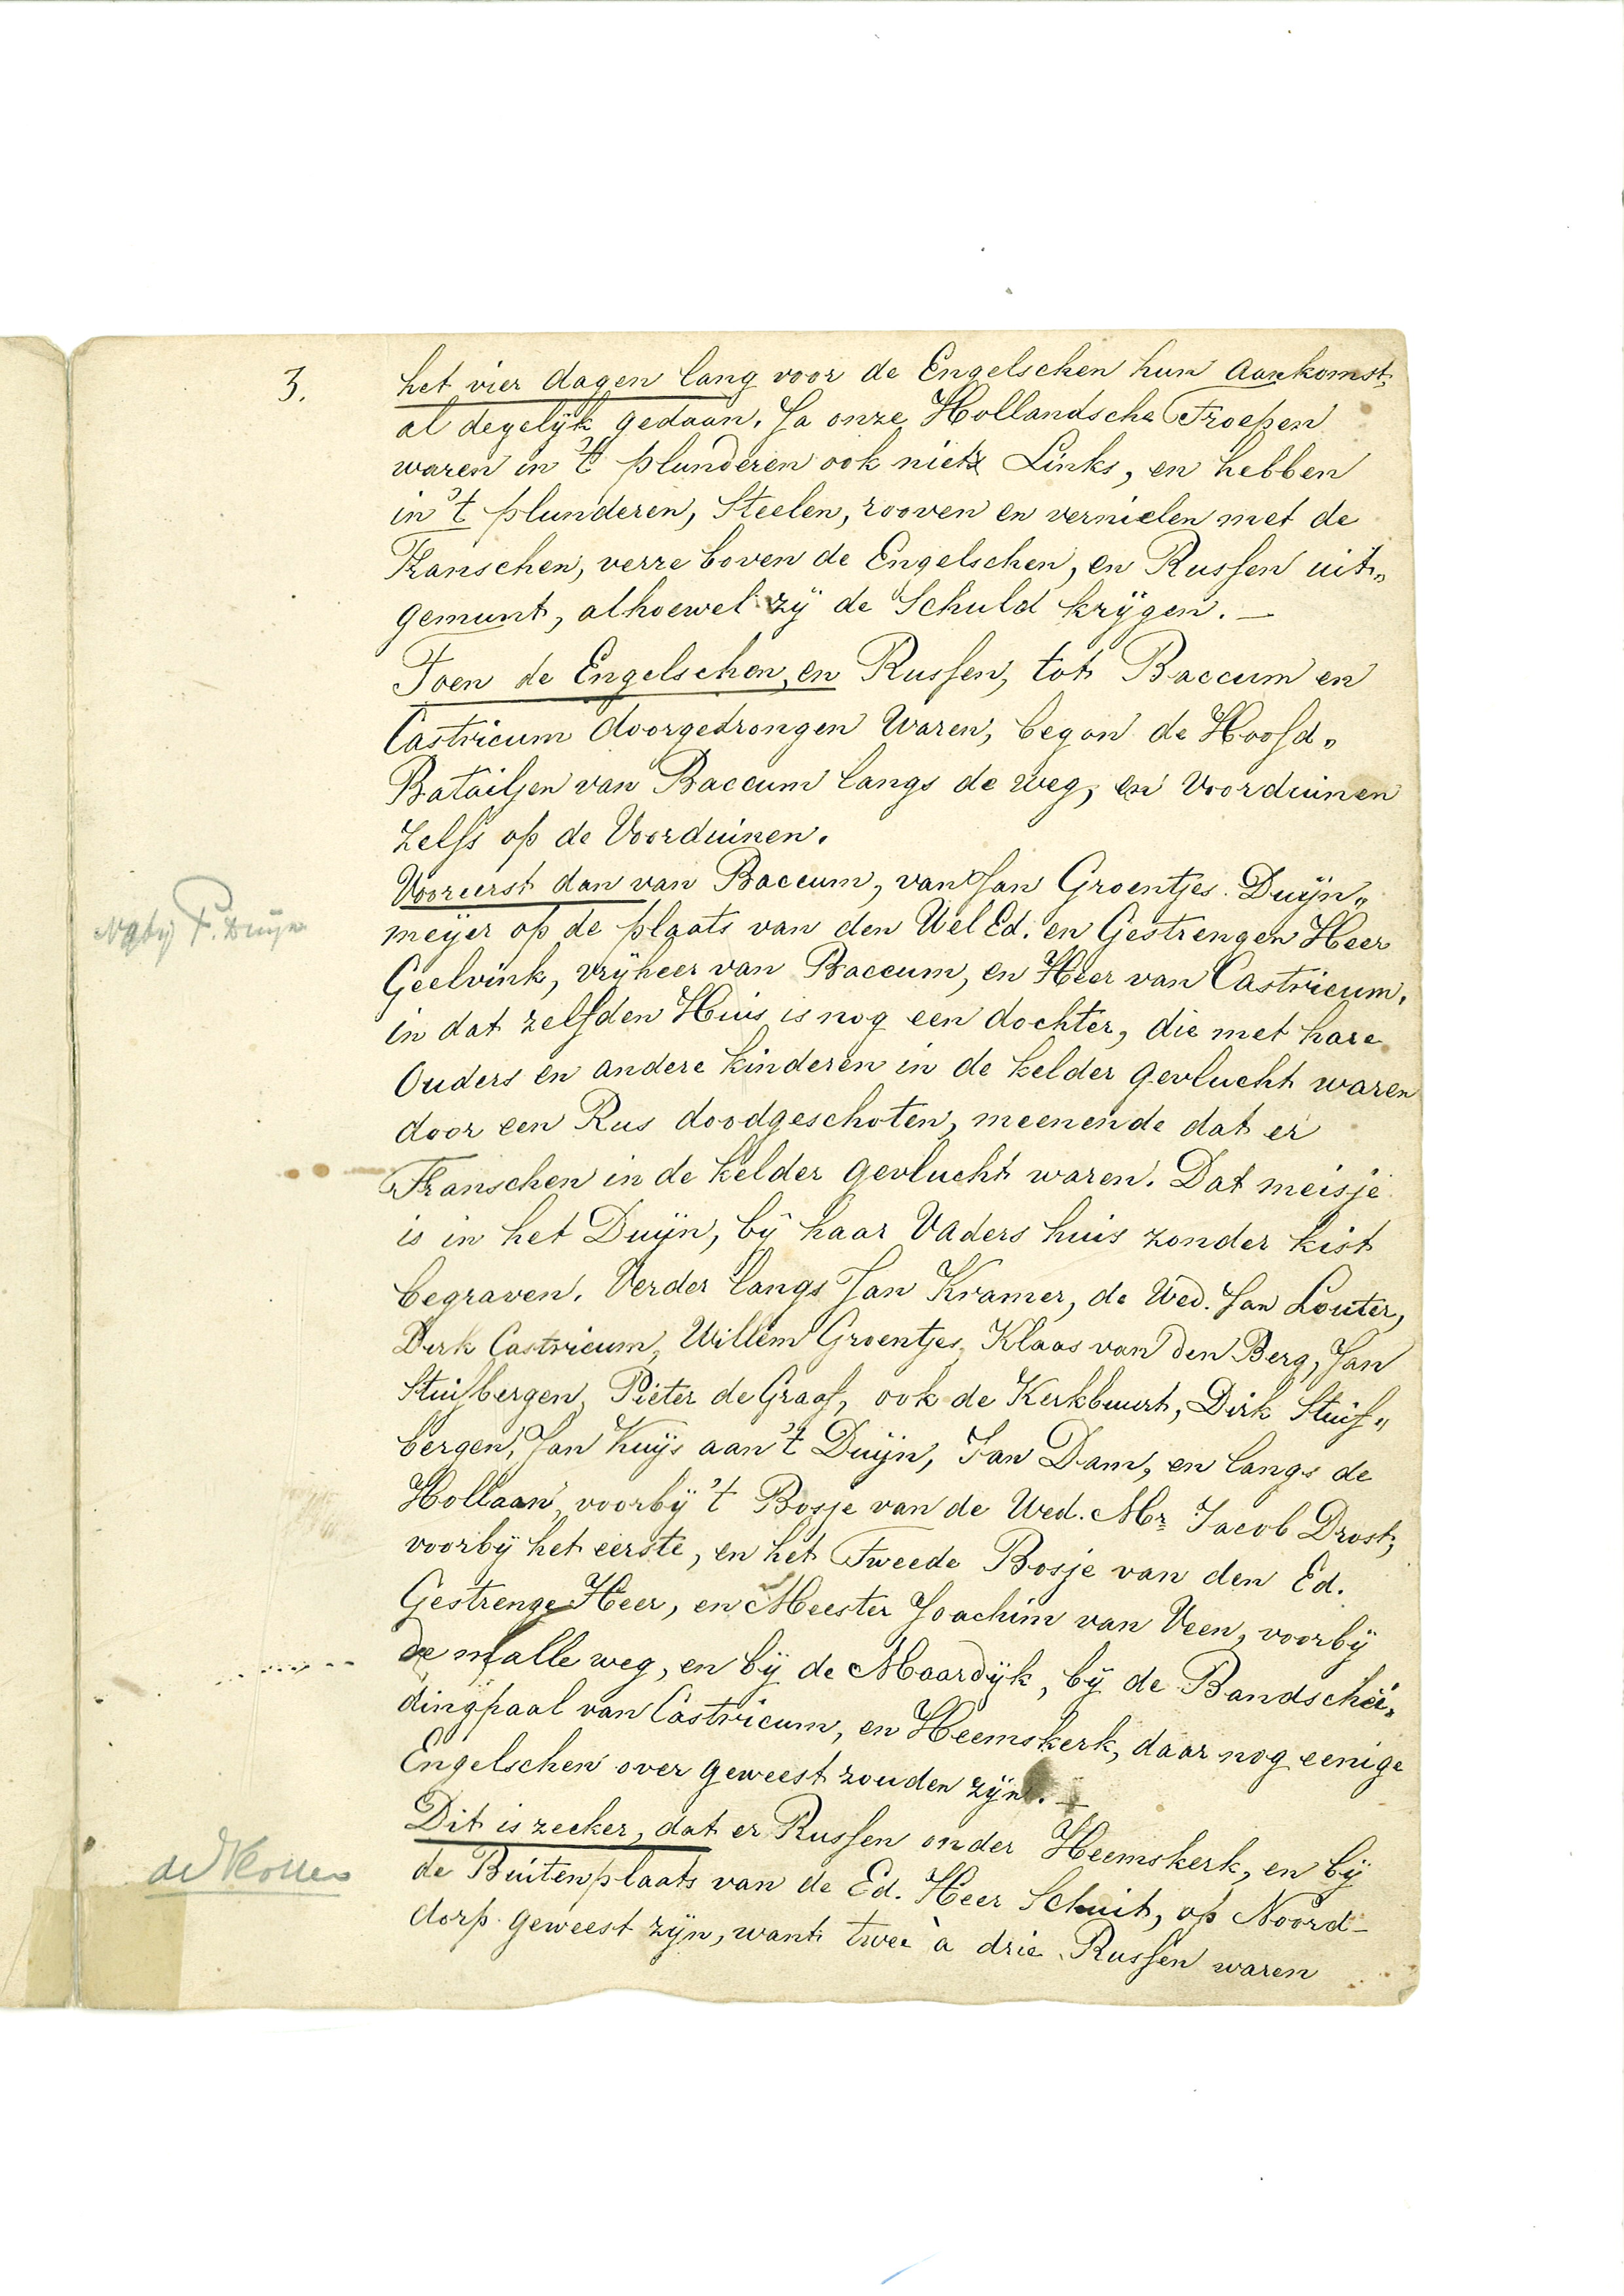 3.
het vier dagen lang voor de Engelschen hun Aankomst,
al degelijk gedaan. Ja onze Hollandsche Troepen
waren in 't plunderen ook niet Links, en hebben
in 't plunderen, Steelen, rooven en vernielen met de
Franschen, verre boven de Engelschen, en Russen uit„
gemunt, alhoewel zij de Schuld krijgen. —
Toen de Engelschen, en Russen, tot Baccum en
Castricum doorgedrongen Waren, begon de Hoofd„
Batailjen van Baccum langs de weg, en Voorduinen
Zelfs op de Voorduinen.
Vooreerst dan van Baccum, van Jan Groentjes Duijn„
meijer op de plaats van den Wel Ed. en Gestrengen Heer
Geelvink, vrijheer van Baccum, en Heer van Castricum.
in dat zelfden Huis is nog een dochter, die met hare
Ouders en andere kinderen in de kelder gevlucht waren
door een Rus doodgeschoten, meenende dat er
Franschen in de kelder gevlucht waren. Dat meisje
is in het Duijn, bij haar Vaders huis zonder kist
begraven. Verder langs Jan Kramer, de Wed. Jan Louter,
Dirk Castricum, Willem Groentjes, Klaas van den Berg, Jan
Stuifbergen, Pieter de Graaf, ook de Kerkbuurt, Dirk Stuif„
bergen, Jan Kuijs aan 't Duijn, Jan Dam, en langs de
Hollaan, voorbij 't Bosje van de Wed. Mr Jacob Drost,
voorbij het eerste, en het Tweede Bosje van den Ed.
Gestrenge Heer, en Meester Joachim van Veen, voorbij
de malle weg, en bij de Maardijk, bij de Bandschei„
dingpaal van Castricum, en Heemskerk, daar nog eenige
Engelschen over geweest zouden zijn. —
Dit is zeeker, dat er Russen onder Heemskerk, en bij
de Buitenplaats van de Ed. Heer Schuit, op Noord-
dorp geweest zijn, want twee à drie Russen waren
P. Duijn
de